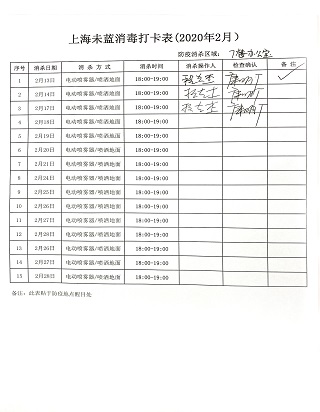 上海未蓝消毒打卡表(2020年2月)
防疫消杀区域： 7楼办公室
序号 消杀日期 消杀方式 消杀时间 消杀操作人 检查确认 备注
1 2月13日 电动喷雾器/喷洒地面 18:00-19:00 ✓
2 2月14日 电动喷雾器/喷洒地面 18:00-19:00
3 2月17日 电动喷雾器/喷洒地面 18:00-19:00
4 2月18日 电动喷雾器/喷洒地面 18:00-19:00
5 2月19日 电动喷雾器/喷洒地面 18:00-19:00
6 2月20日 电动喷雾器/喷洒地面 18:00-19:00
7 2月21日 电动喷雾器/喷洒地面 18:00-19:00
8 2月24日 电动喷雾器/喷洒地面 18:00-19:00
9 2月25日 电动喷雾器/喷洒地面 18:00-19:00
10 2月26日 电动喷雾器/喷洒地面 18:00-19:00
11 2月27日 电动喷雾器/喷洒地面 18:00-19:00
12 2月28日 电动喷雾器/喷洒地面 18:00-19:00
13 2月26日 电动喷雾器/喷洒地面 18:00-19:00
14 2月27日 电动喷雾器/喷洒地面 18:00-19:00
15 2月28日 电动喷雾器/喷洒地面 18:00-19:00
备注：此表贴于防疫地点醒目处